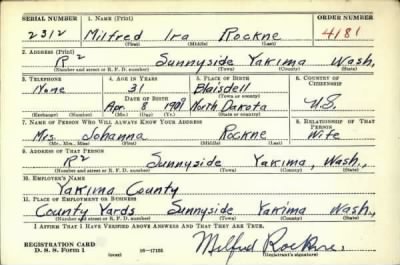 SERIAL NUMBER 1. NAME (Print) ORDER NUMBER
2312 Milfred Ira Rockne 4181
(First) (Middle) (Last)
2. ADDRESS (Print)
R2 Sunnyside Yakima Wash.
(Number and street or R. F. D. number) (Town) (County) (State)
3. TELEPHONE 4. AGE IN YEARS 5. PLACE OF BIRTH 6. COUNTRY OF CITIZENSHIP
None 31 Blaisdell
DATE OF BIRTH (Town or county)
Apr 8 1909 North Dakota U.S.
(Exchange) (Number) (Mo.) (Day) (Yr.) (State or country)
7. NAME OF PERSON WHO WILL ALWAYS KNOW YOUR ADDRESS 8. RELATIONSHIP OF THAT PERSON
Mrs. Johanna Rockne Wife
(Mr., Mrs., Miss) (First) (Middle) (Last)
9. ADDRESS OF THAT PERSON
R2 Sunnyside Yakima, Wash.,
(Number and street or R. F. D. number) (Town) (County) (State)
10. EMPLOYER'S NAME
Yakima County
11. PLACE OF EMPLOYMENT OR BUSINESS
County Yards Sunnyside Yakima Wash.
(Number and street or R. F. D. number) (Town) (County) (State)
I AFFIRM THAT I HAVE VERIFIED ABOVE ANSWERS AND THAT THEY ARE TRUE.
REGISTRATION CARD
D. S. S. Form 1 (over) 16—17105 Milfred Rockne.
(Registrant's signature)